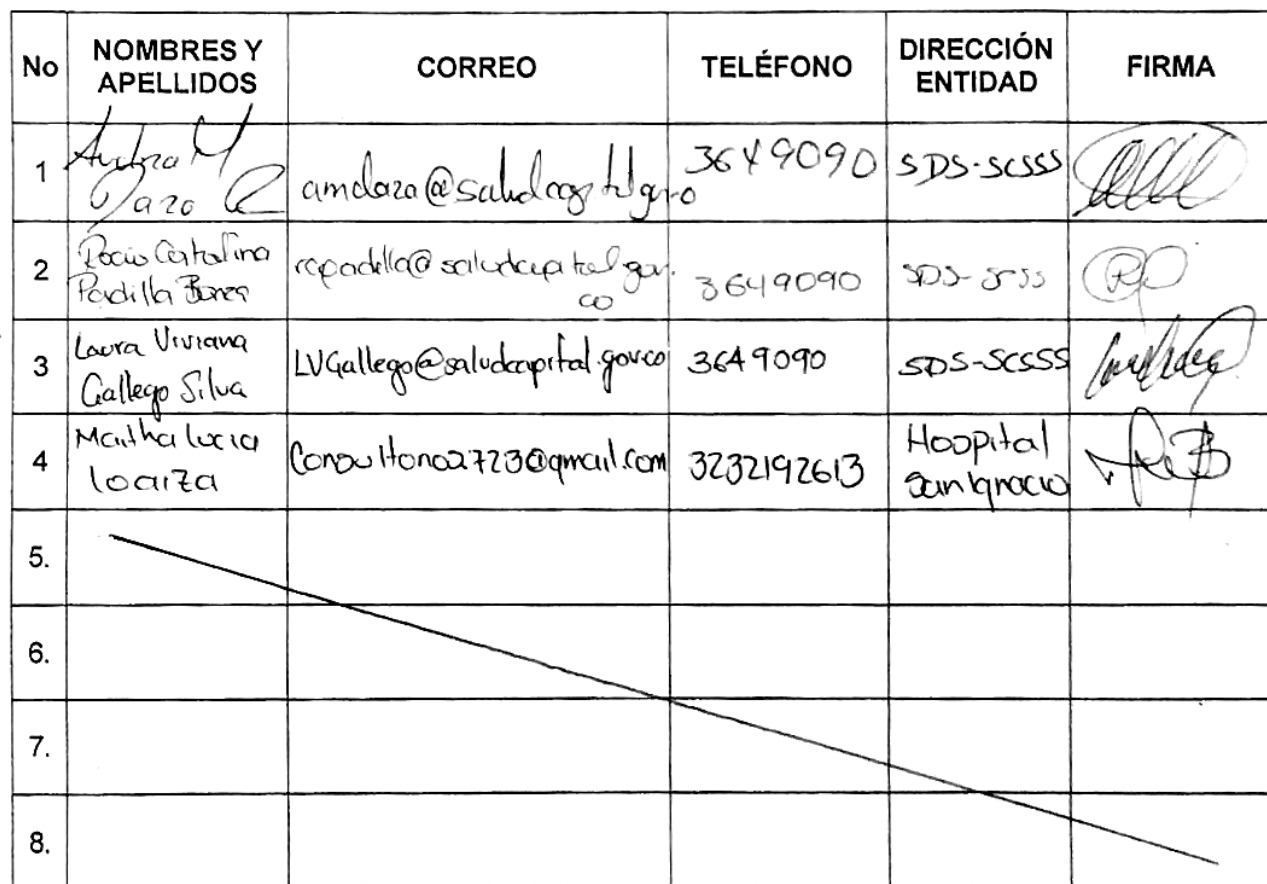 No NOMBRES Y APELLIDOS CORREO TELÉFONO DIRECCIÓN ENTIDAD FIRMA
1 Andrea M Daza amdaza@saludcapital.gov.co 3649090 SDS-SCSSS
2 Rocio Catalina Padilla rcpadilla@saludcapital.gov.co 3649090 SDS-
3 Laura Viviana Gallego Silva LVGallego@saludcapital.gov.co 3649090 SDS-SCSSS
4 Martha Lucia Loaiza 3232192613 Hospital San Ignacio
5.
6.
7.
8.